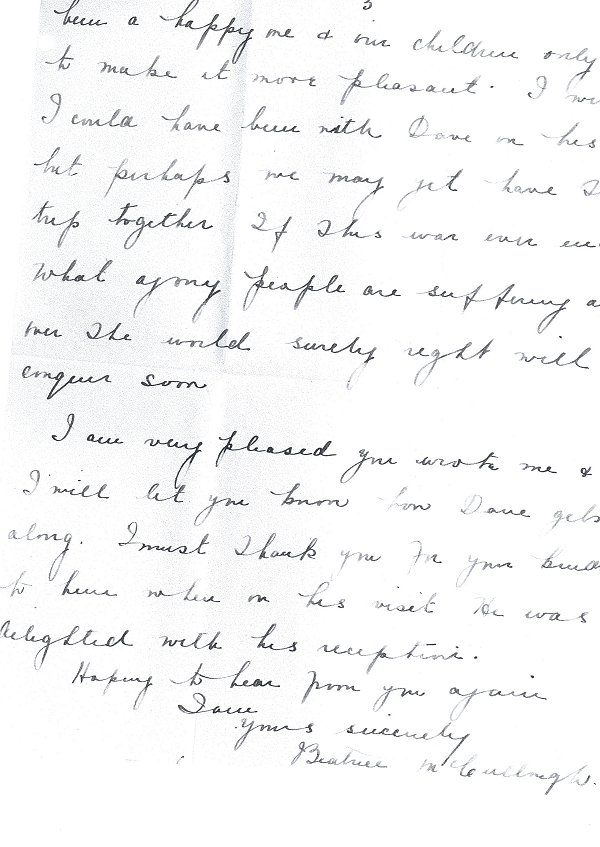 3
been a happy one & our children only
to make it more pleasant. I
I could have been with Dave on his
but perhaps we may yet have
trip together If this war ever
What agony people are suffering
over the world surely right will
conquer soon
I am very pleased you wrote me &
I will let you know how Dave gets
along. I must thank you for your
to him when on his visit He was
delighted with his reception.
Hoping to hear from you again
I am
yours sincerely
Beatrice McCullough.